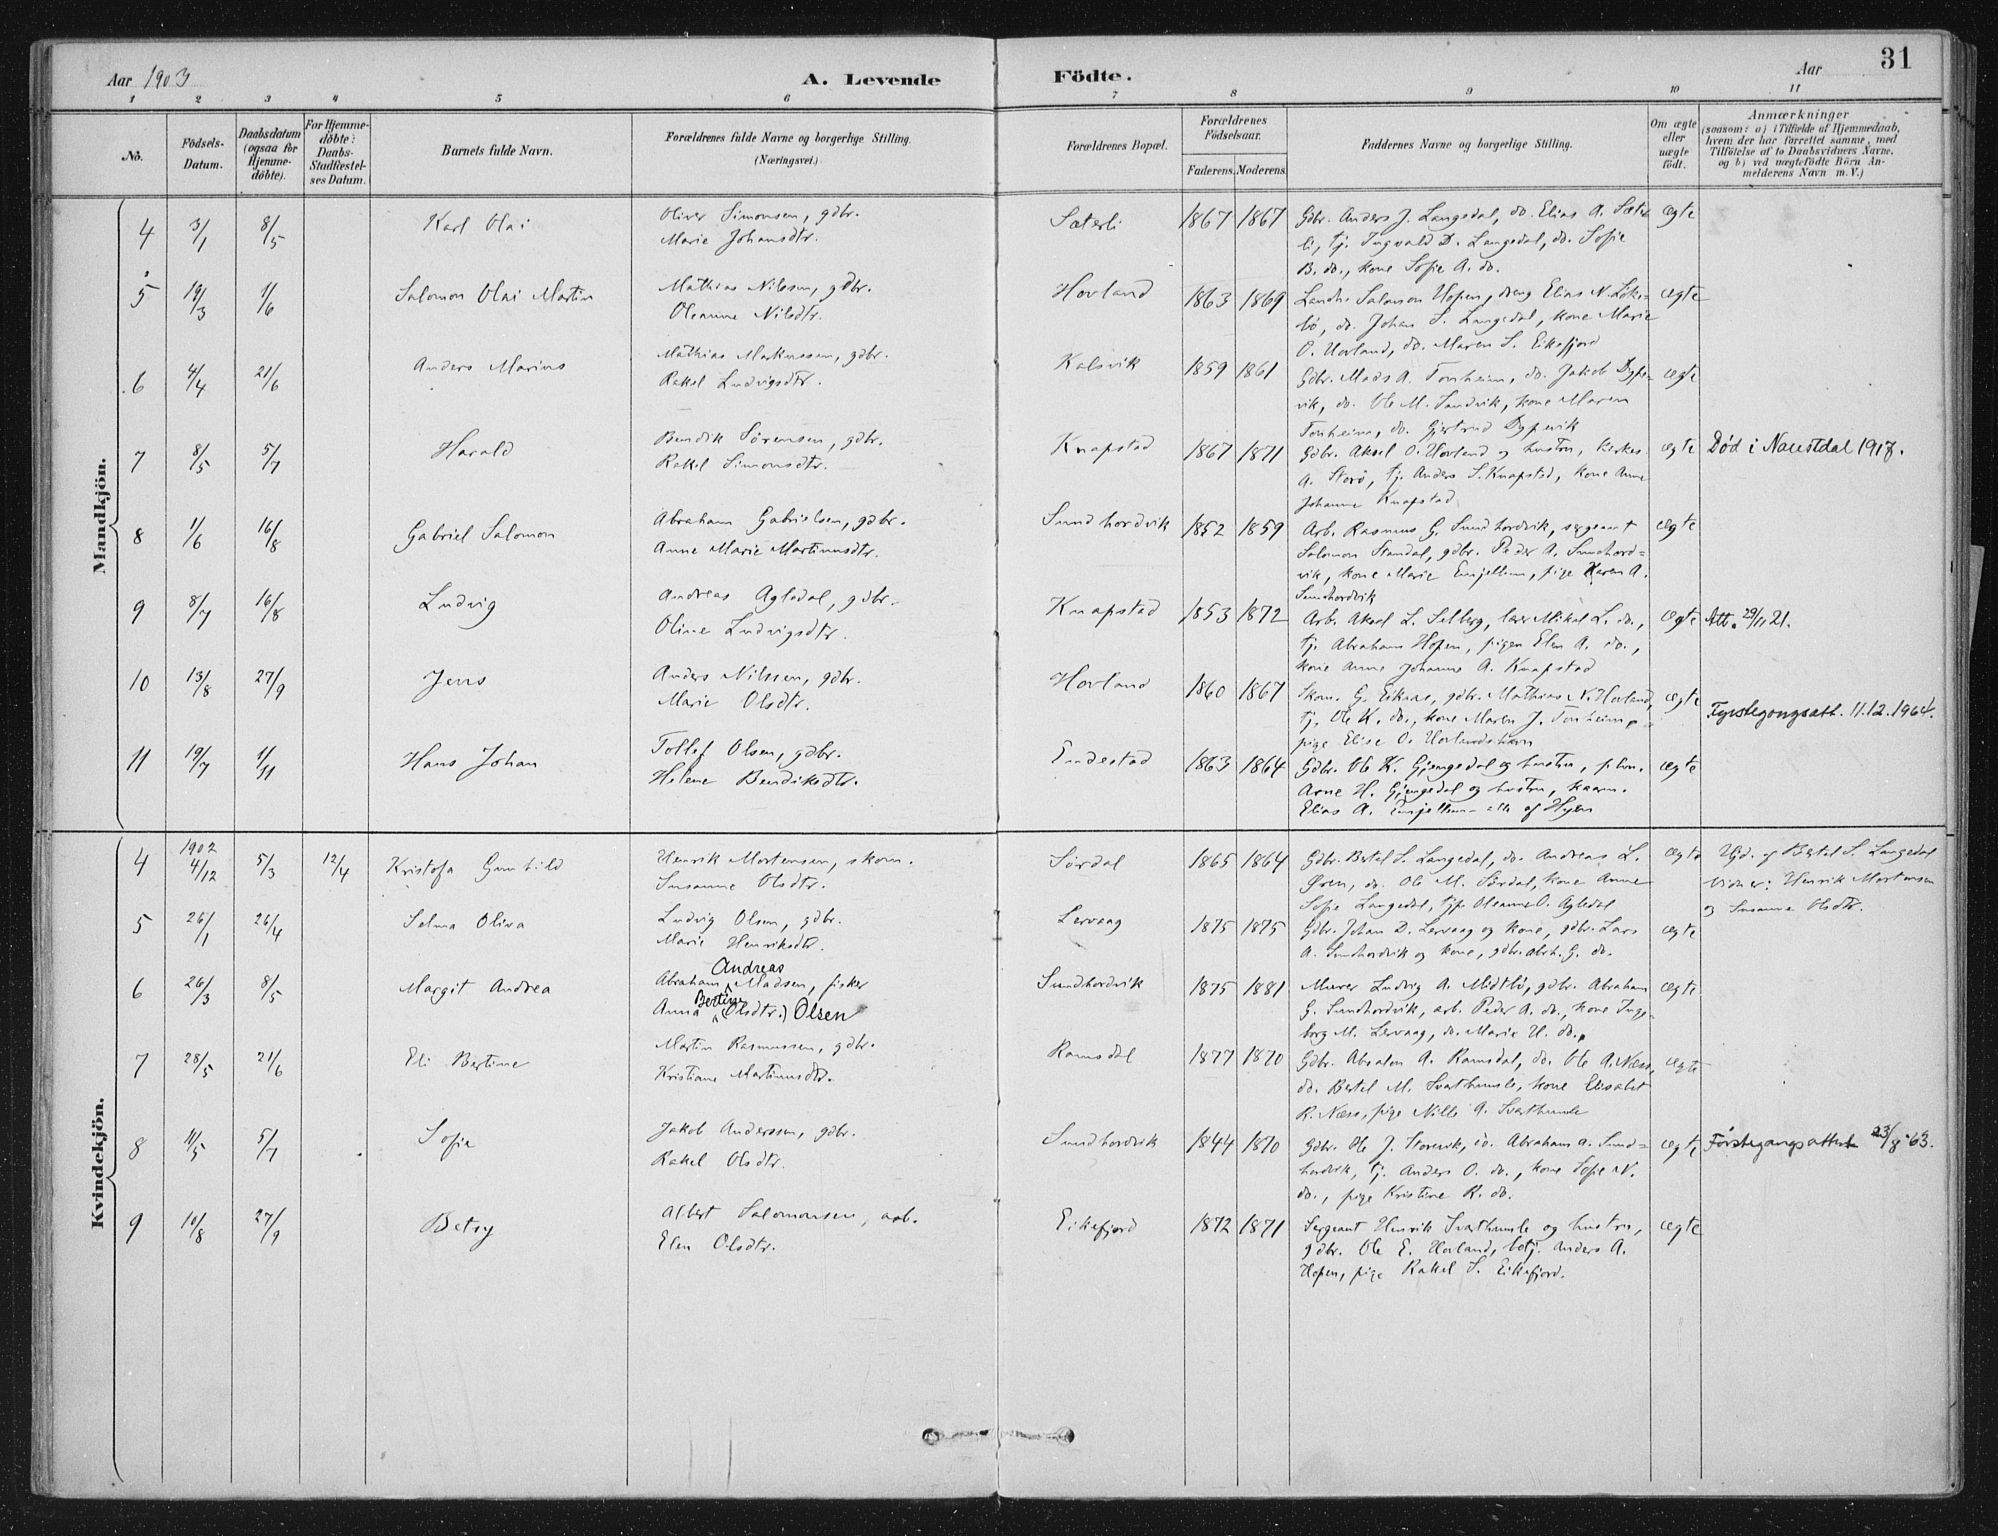 Aar 1903
A. Levende Födte.
Aar
31
1 2 3 4 5 6 7 8 9 10 11
No.
Födsels-Datum.
Daabsdatum (ogsaa for Hjemme-döbte).
For Hjemme-döbte: Daabs-Stadfæstel-ses Datum.
Barnets fulde Navn.
Forældrenes fulde Navne og borgerlige Stilling. (Næringsvei.)
Forældrenes Bopæl.
Forældrenes Födselsaar.
Faderens. Moderens.
Faddernes Navne og borgerlige Stilling.
Om ægte eller uægte födt.
Anmærkninger
(saasom: a) i Tilfælde af Hjemmedaab,
hvem der har forrettet samme, med
Tilföielse af to Daabsvidners Navne,
og b) ved uægtefödte Börn An-
melderens Navn m. V.)
Mandkjön.
4 3/1 8/5 Karl Olai Oliver Simonsen, gdbr. Sæterli 1867 1867 Gdbr. Anders J. Langedal, do. Elias A. Sæter- ægte
Marie Johansdtr. li, tj. Ingvald D. Langedal, do. Sofie
B. do., kone Sofie A. do.
5 19/3 1/6 Salomon Olai Martin Mathias Nilssen, gdbr. Hovland 1863 1869 Landh. Salomon Hopen, dreng Elias N. Løkke- ægte
Oleanne Nilsdtr. bø, do. Johan S. Langedal, kone Marie
O. Hovland, do. Maren S. Eikefjord
6 4/4 21/6 Anders Marius Mathias Markussen, gdbr. Kalsvik 1859 1861 Gdbr. Mads A. Tonheim, do. Jakob Dype- ægte
Rakel Ludvigsdtr. vik, do. Ole M. Sandvik, kone Maren
Tonheim, do. Gjertrud Dypevik
7 8/5 5/7 Harald Bendik Sørensen, gdbr. Knapstad 1867 1871 Gdbr. Aksel O. Hovland og hustru, ægte Død i Naustdal 1917.
Rakel Simonsdtr. A. Storø, tj. Anders S. Knapstad, kone Anne
Johanne Knapstad
8 1/6 16/8 Gabriel Salomon Abraham Gabrielsen, gdbr. Sundhordvik 1852 1859 Arb. Rasmus G. Sundhordvik, sergeant ægte
Anne Marie Martinusdtr. Salomon Standal, gdbr. Peder A. Sundhord-
vik, kone Marie Emjellem, pige Karen A.
Sundhordvik
9 8/7 16/8 Ludvig Andreas Agledal, gdbr. Knapstad 1853 1872 Arb. Aksel L. Selberg, lærer Mikal L. do., ægte Att. 29/11 21.
Oline Ludvigsdtr. tj. Abraham Hopen, pigen Elen A. do.,
kone Anne Johanne A. Knapstad
10 13/8 27/9 Jens Anders Nilssen, gdbr. Hovland 1860 1867 Skom. G. Eiknas, gdbr. Mathias N. Hovland, ægte Fyrstegongsatt. 11.12.1964.
Marie Olsdtr. tj. Ole K. do., kone Maren J. Tonheim,
pige Elise O. Hovlandshavn
11 19/7 1/11 Hans Johan Tollef Olsen, gdbr. Endestad 1863 1864 Gdbr. Ole K. Gjengedal og hustru, ægte
Helene Bendiksdtr. Arne H. Gjengedal og hustru,
Elias A. Emjellem alle af Hyen
Kvindekjön.
4 1902 4/12 5/3 12/4 Kristofa Gunhild Henrik Mortensen, skom. Sørdal 1865 1864 Gdbr. Bertel S. Langedal, do. Andreas L. ægte Hjd. af Bertel S. Langedal
Susanne Olsdtr. Øren, do. Ole M. Sørdal, kone Anne Vidner: Henrik Mortensen
Sofie Langedal, Oleanne O. Agledal og Susanne Olsdtr.
5 26/1 26/4 Selma Oliva Ludvig Olsen, gdbr. Lervaag 1875 1875 Gdbr. Johan D. Lervaag og kone, gdbr. Lars ægte
Marie Henriksdtr. A. Sundhordvik og kone, gdbr. abrh. G. do.
6 26/3 8/5 Margit Andrea Abraham Andreas Madsen, fisker Sundhordvik 1875 1881 Murer Ludvig A. Midtbø, gdbr. Abraham ægte
Anna Bertine (Olsdtr.) Olsen G. Sundhordvik, arb. Peder A. do., kone Inge-
borg M. Lervaag, do. Marie H. do.
7 28/5 21/6 Eli Bertine Martin Rasmussen, gdbr. Ramsdal 1877 1870 Gdbr. Absalon A. Ramsdal, do. Ole A. Næss, ægte
Kristiane Martinusdtr. do. Bertel M. Svarthumle, kone Elisabet
R. Næss, pige Nille A. Svarthumle
8 11/5 5/7 Sofie Jakob Anderssen, gdbr. Sundhordvik 1844 1870 Gdbr. Ole J. Storevik, do. Abraham A. Sund- ægte Førstegangsattest 23/8-63.
Rakel Olsdtr. hordvik, tj. Anders O. do., kone Sofie N.
do., pige Kristine R. do.
9 10/8 27/9 Betsy Albert Salomonsen, arb. Eikefjord 1872 1871 Sergeant Henrik Svarthumle og hustru, ægte
Elen Olsdtr. gdbr. Ole E. Hovland, Anders A.
Hopen, pige Rakel S. Eikefjord.